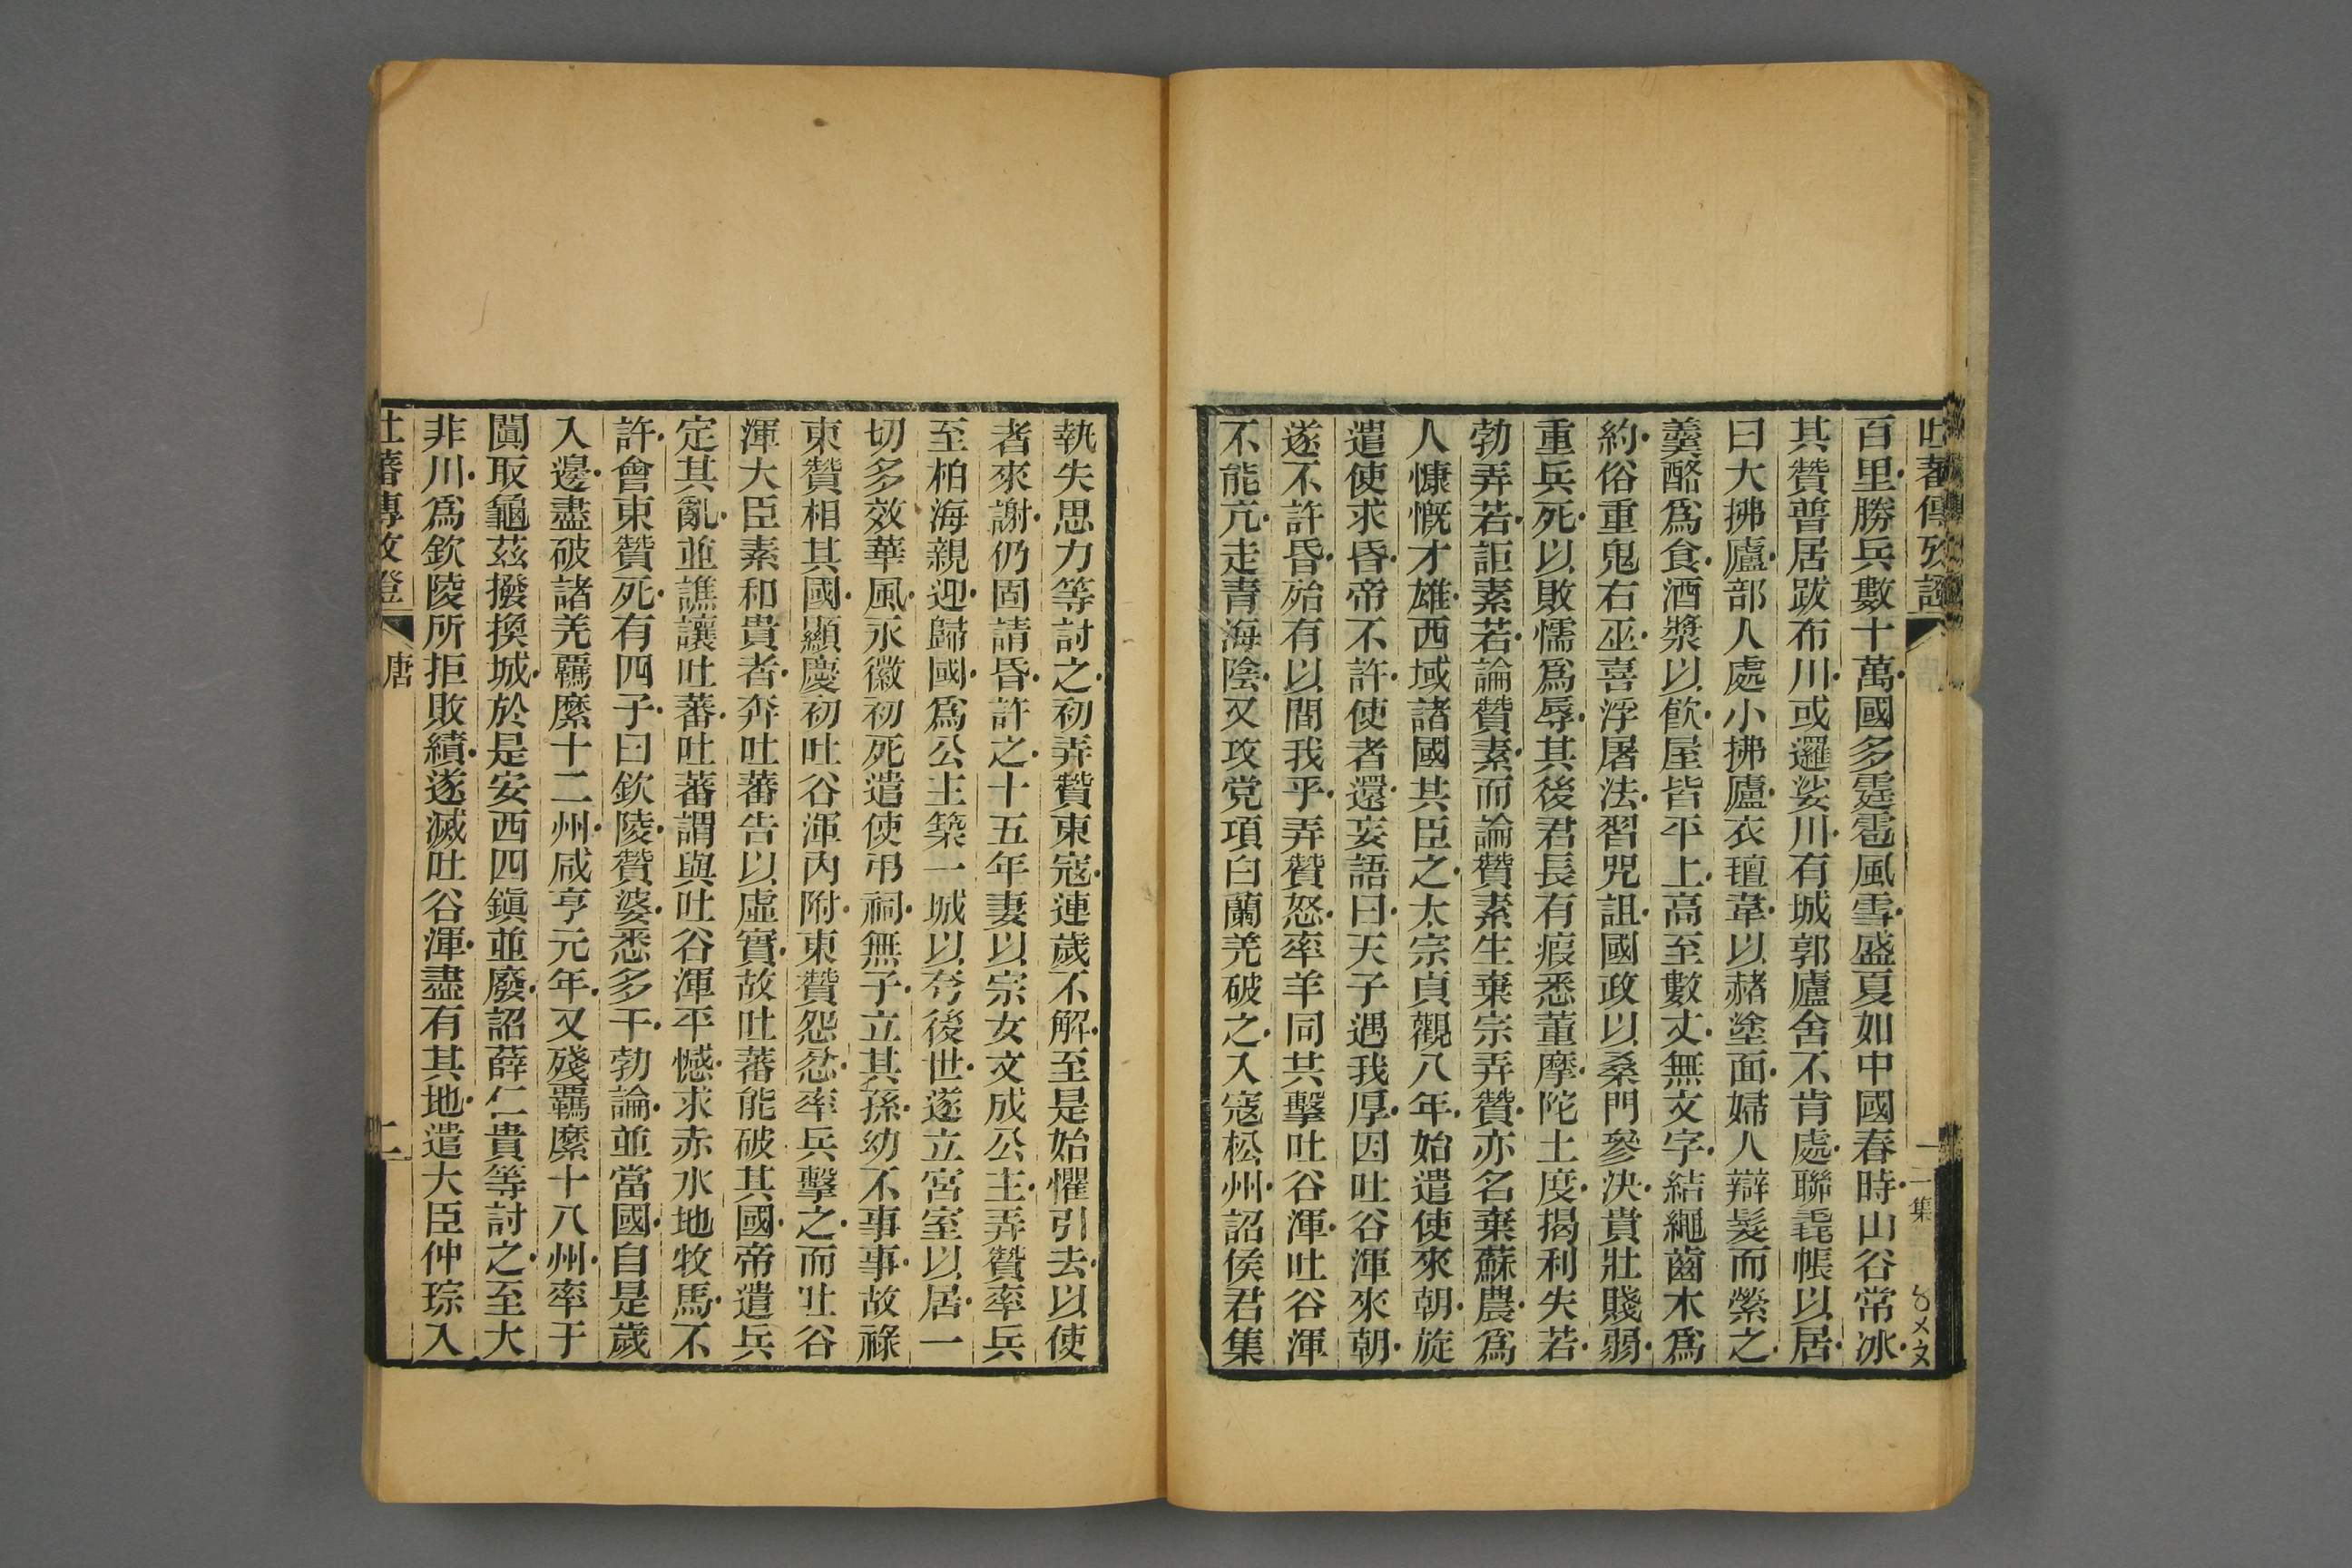 吐蕃傳攷證
一
二集
百里勝兵數十萬國多霆雹風雪盛夏如中國春時山谷常冰
其贊普居跋布川或邏娑川有城郭廬舍不肯處聯毳帳以居
曰大拂廬部人處小拂廬衣氊韋以赭塗面婦人辮髮而縈之
羹酪爲食酒漿以飮屋皆平上高至數丈無文字結繩齒木爲
約俗重鬼右巫喜浮屠法習咒詛國政以桑門參決貴壯賤弱
重兵死以敗懦爲辱其後君長有瘕悉董摩陀土度揭利失若
勃弄若詎素若論贊素而論贊素生棄宗弄贊亦名棄蘇農爲
人慷慨才雄西域諸國共臣之太宗貞觀八年始遣使來朝旋
遣使求昏帝不許使者還妄語曰天子遇我厚因吐谷渾來朝
遂不許昏殆有以間我乎弄贊怒率羊同共擊吐谷渾吐谷渾
不能亢走青海陰又攻党項白蘭羌破之入寇松州詔侯君集
執失思力等討之初弄贊東寇連歲不解至是始懼引去以使
者來謝仍固請昏許之十五年妻以宗女文成公主弄贊率兵
至柏海親迎歸國爲公主築一城以夸後世遂立宮室以居一
切多效華風永徽初死遣使弔祠無子立其孫幼不事事故祿
東贊相其國顯慶初吐谷渾內附東贊怨忿率兵擊之而吐谷
渾大臣素和貴者奔吐蕃告以虛實故吐蕃能破其國帝遣兵
定其亂並譙讓吐蕃吐蕃謂與吐谷渾平憾求赤水地牧馬不
許會東贊死有四子曰欽陵贊婆悉多干勃論並當國自是歲
入邊盡破諸羌羈縻十二州咸亨元年又殘羈縻十八州率于
闐取龜茲撥換城於是安西四鎭並廢詔薛仁貴等討之至大
非川爲欽陵所拒敗績遂滅吐谷渾盡有其地遣大臣仲琮入
吐蕃傳攷證
唐